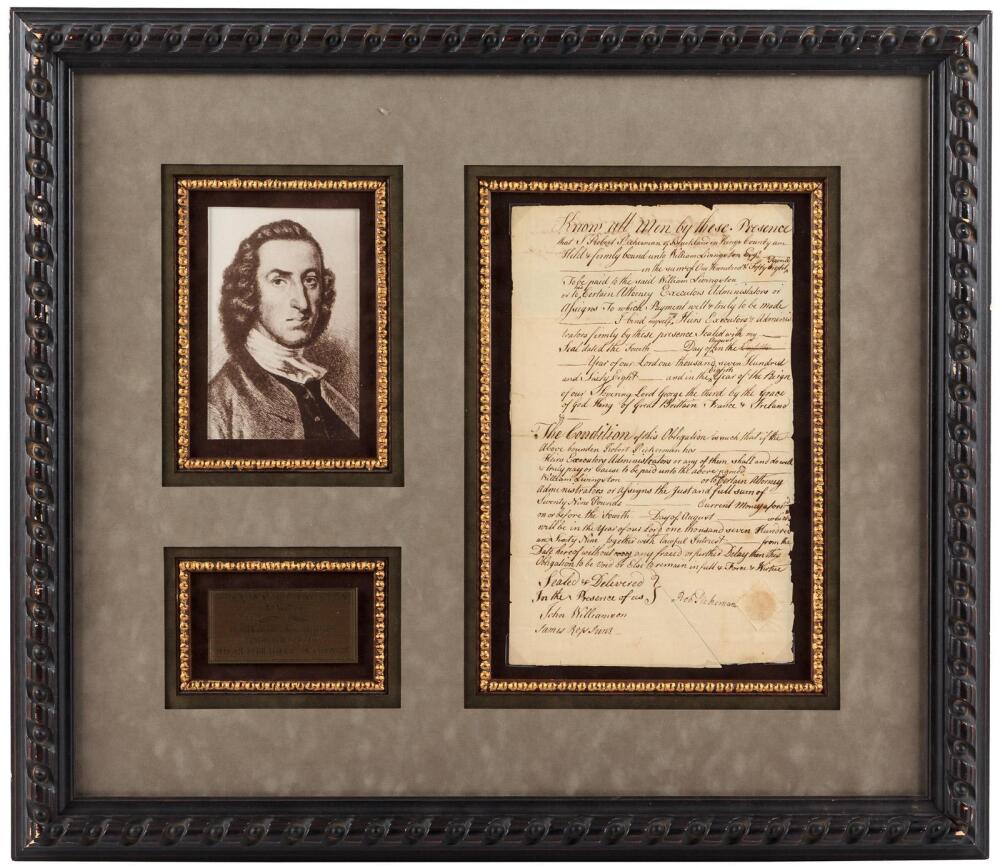 Know all Men by these Presence
that I Robert of in Kings County am
Held & firmly bound unto William Livingston Esq.
in the sum of One Hundred & Fifty Eight Pounds
To be paid to the said William Livingston
or to Certain Attorney Executors Administrators or
Assigns To which Payment well & truly to be made
I bind myself Heirs Executors & Adminis
trators firmly by these presence Sealed with my
Seal dated the Fourth Day of August in the
Year of our Lord one thousand seven Hundred
and Sixty Eight and in the Eighth Year of the Reign
of our Lord George the third by the Grace
of God King of Great Brittain France & Ireland
The Condition of this Obligation is such that if the
above bounden Robert his
Heirs Executors Administrators or any of them shall and do well
& truly pay or Cause to be paid unto the above named
William Livingston or to Certain Attorney
Administrators or Assigns the Just and full sum of
Seventy Nine Pounds Current Money
on or before the Fourth Day of August which
will be in the Year of our Lord one thousand seven Hundred
and Sixty Nine together with Lawful Interest from the
Date hereof without any fraud or further Delay then this
Obligation to be Void or Else to remain in full & Force & Virtue
Sealed & Delivered }
In the Presence of us }
John Williamson
James